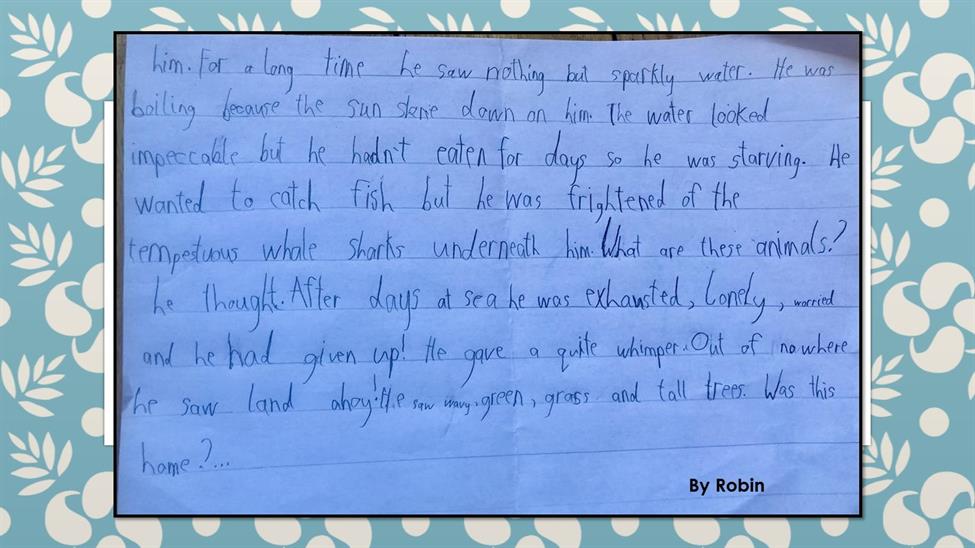 him. For a long time he saw nothing but sparkly water. He was
boiling because the sun shone down on him. The water looked
impeccable but he hadn't eaten for days so he was starving. He
wanted to catch fish but he was frightened of the
tempestuous whale sharks underneath him. What are these animals?
he thought. After days at sea he was exhausted, lonely, worried
and he had given up! He gave a quite whimper. Out of nowhere
he saw land ahoy! He saw wavy, green, grass and tall trees. Was this
home?...
By Robin